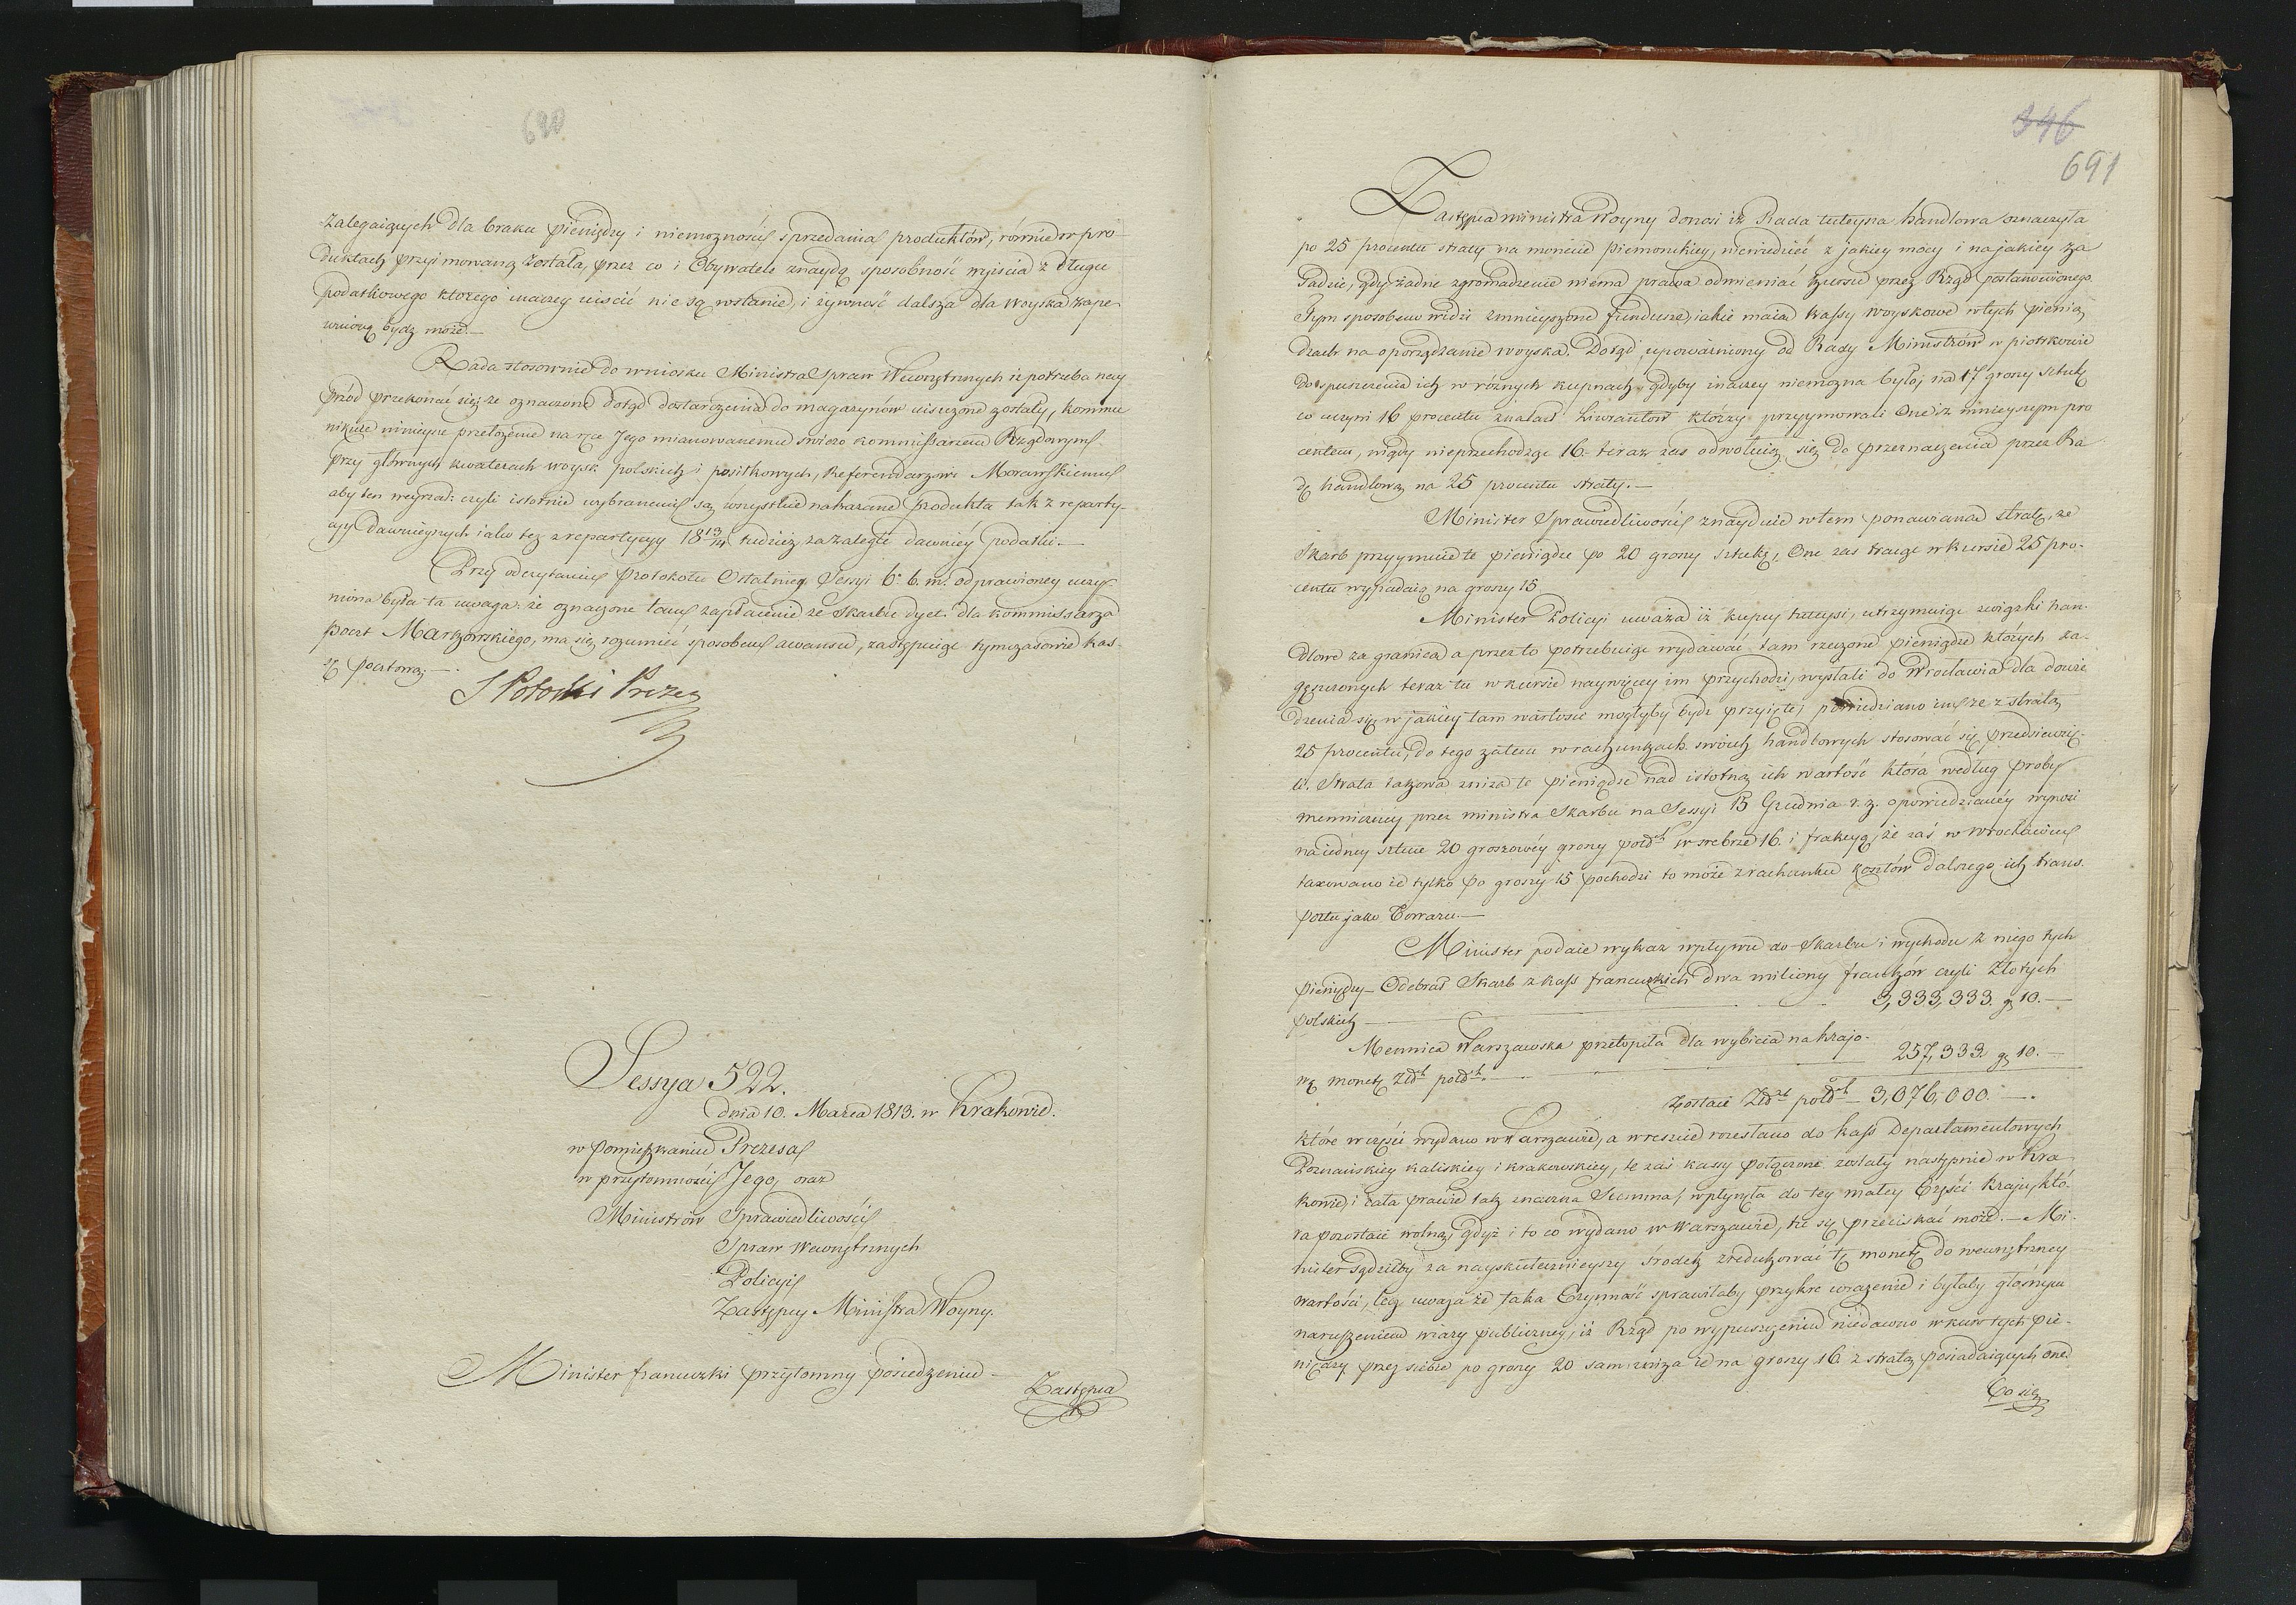 690
zalegaiących dla braku pieniędzy i niemożności sprzedania produktów, równie w pro-
duktach przyimowaną została, przez co i Obywatele znaydą sposobność wyjścia z długu
podatkowego którego inaczey uiścić nie są wstanie, i żywność dalsza dla woyska zape-
wnioną bydź może.—
Rada stosownie do wniosku Ministra Spraw Wewnętrznych iż potrzeba nay
przód przekonać się, że oznaczone dotąd dostarczenia do magazynów uiszczone zostały, kommu
nikuie ninieysze przełożenie na ręce Jego mianowanemu świeżo Kommissarzowi Rządowym
przy głównych kwaterach woysk polskich i posiłkowych, Referendarzowi Morawskiemu
aby ten weyrzał: czyli istotnie wybranemi są wszystkie nakazane produkta tak z reparty-
cyy dawnieyszych iako też z repartycyy 18 13/14 tudzież za zaległe dawniey podatki.—
Przy odczytaniu protokołu Ostatniey Sessyi 6. b. m. odprawioney uczy
niona była ta uwaga: że oznaczone tam zapłacenie ze Skarbu dyet dla Kommissarza
poczt Markowskiego, ma się rozumieć sposobem awansu, zastępuiąc tymczasowie kas-
sę pocztową.—
S Potocki Prezes
Sessya 522.
dnia 10. Marca 1813. w Krakowie.
w Pomieszkaniu Prezesa
w przytomności Jego, oraz
Ministrów Sprawiedliwości
Spraw Wewnętrznych
Policyi
Zastępcy Ministra Woyny.
Minister francuzki przytomny posiedzeniu—
Zastępca
346
691
Zastępca ministra Woyny donosi iż Rada tuteysza handlowa oznaczyła
po 25 procentu straty na monecie piemonckiey, niewiedzieć z jakiey mocy i na jakiey za
sadzie, gdy żadne zgromadzenie niema prawa odmieniać kursu przez Rząd postanowionego.
Tym sposobem widzi zmnieyszone fundusze, iakie maią kassy woyskowe w tych pienią
dzach na oporządzanie woyska. Dotąd upoważniony od Rady Ministrów w piotrkowie
do spuszczenia ich w różnych kupnach, gdyby inaczey niemożna było, na 17 groszy sztukę
co czyni 16 procentu znalazł Liwerantów którzy przyymowali One iż mnieyszym pro
centem, nigdy nieprzechodząc 16. teraz zaś odwołuią się do przeznaczenia przez Ra
dę handlową na 25 procentu straty.—
Minister Sprawiedliwości znayduie w tem ponawianą stratę, że
Skarb przyymuie te pieniądze po 20 groszy sztukę, One zaś tracąc w kursie 25 pro-
centu wypadaią na groszy 15.
Minister Policyi uważa iż kupcy tuteysi, utrzymuiąc związki han-
dlowe za granicą a przez to potrzebuiąc wydawać tam rzeczone pieniądze których za-
gęszczonych teraz tu w kursie naywięcey im przychodzi, wysłali do Wrocławia dla dowie
dzenia się w jakiey tam wartości mogłyby bydź przyięte; powiedziano im, że z stratą
25 procentu, do tego zatem w rachunkach swoich handlowych stosować się przedsięwzię-
li. Strata takowa zniża te pieniądze nad istotną ich wartość która według próby
menniczney przez ministra Skarbu na Sessyi 15 Grudnia r. z. opowiedzianey wynosi
na iedney sztuce 20 groszowéy groszy polsch w srebrze 16. i frakcyą; że zaś w Wrocławiu
taxowano ie tylko po groszy 15 pochodzi to może z rachunku kosztów dalszego ich trans-
portu jako Towaru.—
Minister podaie wykaz wpływu do Skarbu i wychodu z niego tych
pieniędzy— Odebrał Skarb z kass francuzkich dwa miliony franków czyli Złotych
polskich — 3,333,333. g. 10.—
Mennica Warszawska przetopiła dla wybicia na krajo-
wę monetę Złch polsch. — 257,333. g. 10.—
Zostaie Złch polsch 3,076,000.—.
które w części wydano w Warszawie, a wreszcie rozesłano do kass Departamentowych
Poznańskiey Kaliskiey i krakowskiey, te zaś kassy połączone zostały następnie w Kra
kowie, i cała prawie tak znaczna Summa, wpłynęła do tey małey Części kraju, któ-
ra pozostaie wolną, gdyż i to co wydano w Warszawie, tu się przeciskać może.— Mi-
nister sądziłby za nayskutecznieyszy środek zredukować tę monetę do wewnętrzney
wartości, lecz uważa że taka Czynność sprawiłaby przykre wrażenie i byłaby głośnym
naruszeniem wiary publiczney, iż Rząd po wypuszczeniu niedawno w kurs tych pie-
niędzy przez siebie po groszy 20 sam zniża ie na groszy 16. z stratą posiadaiących one.
Co się